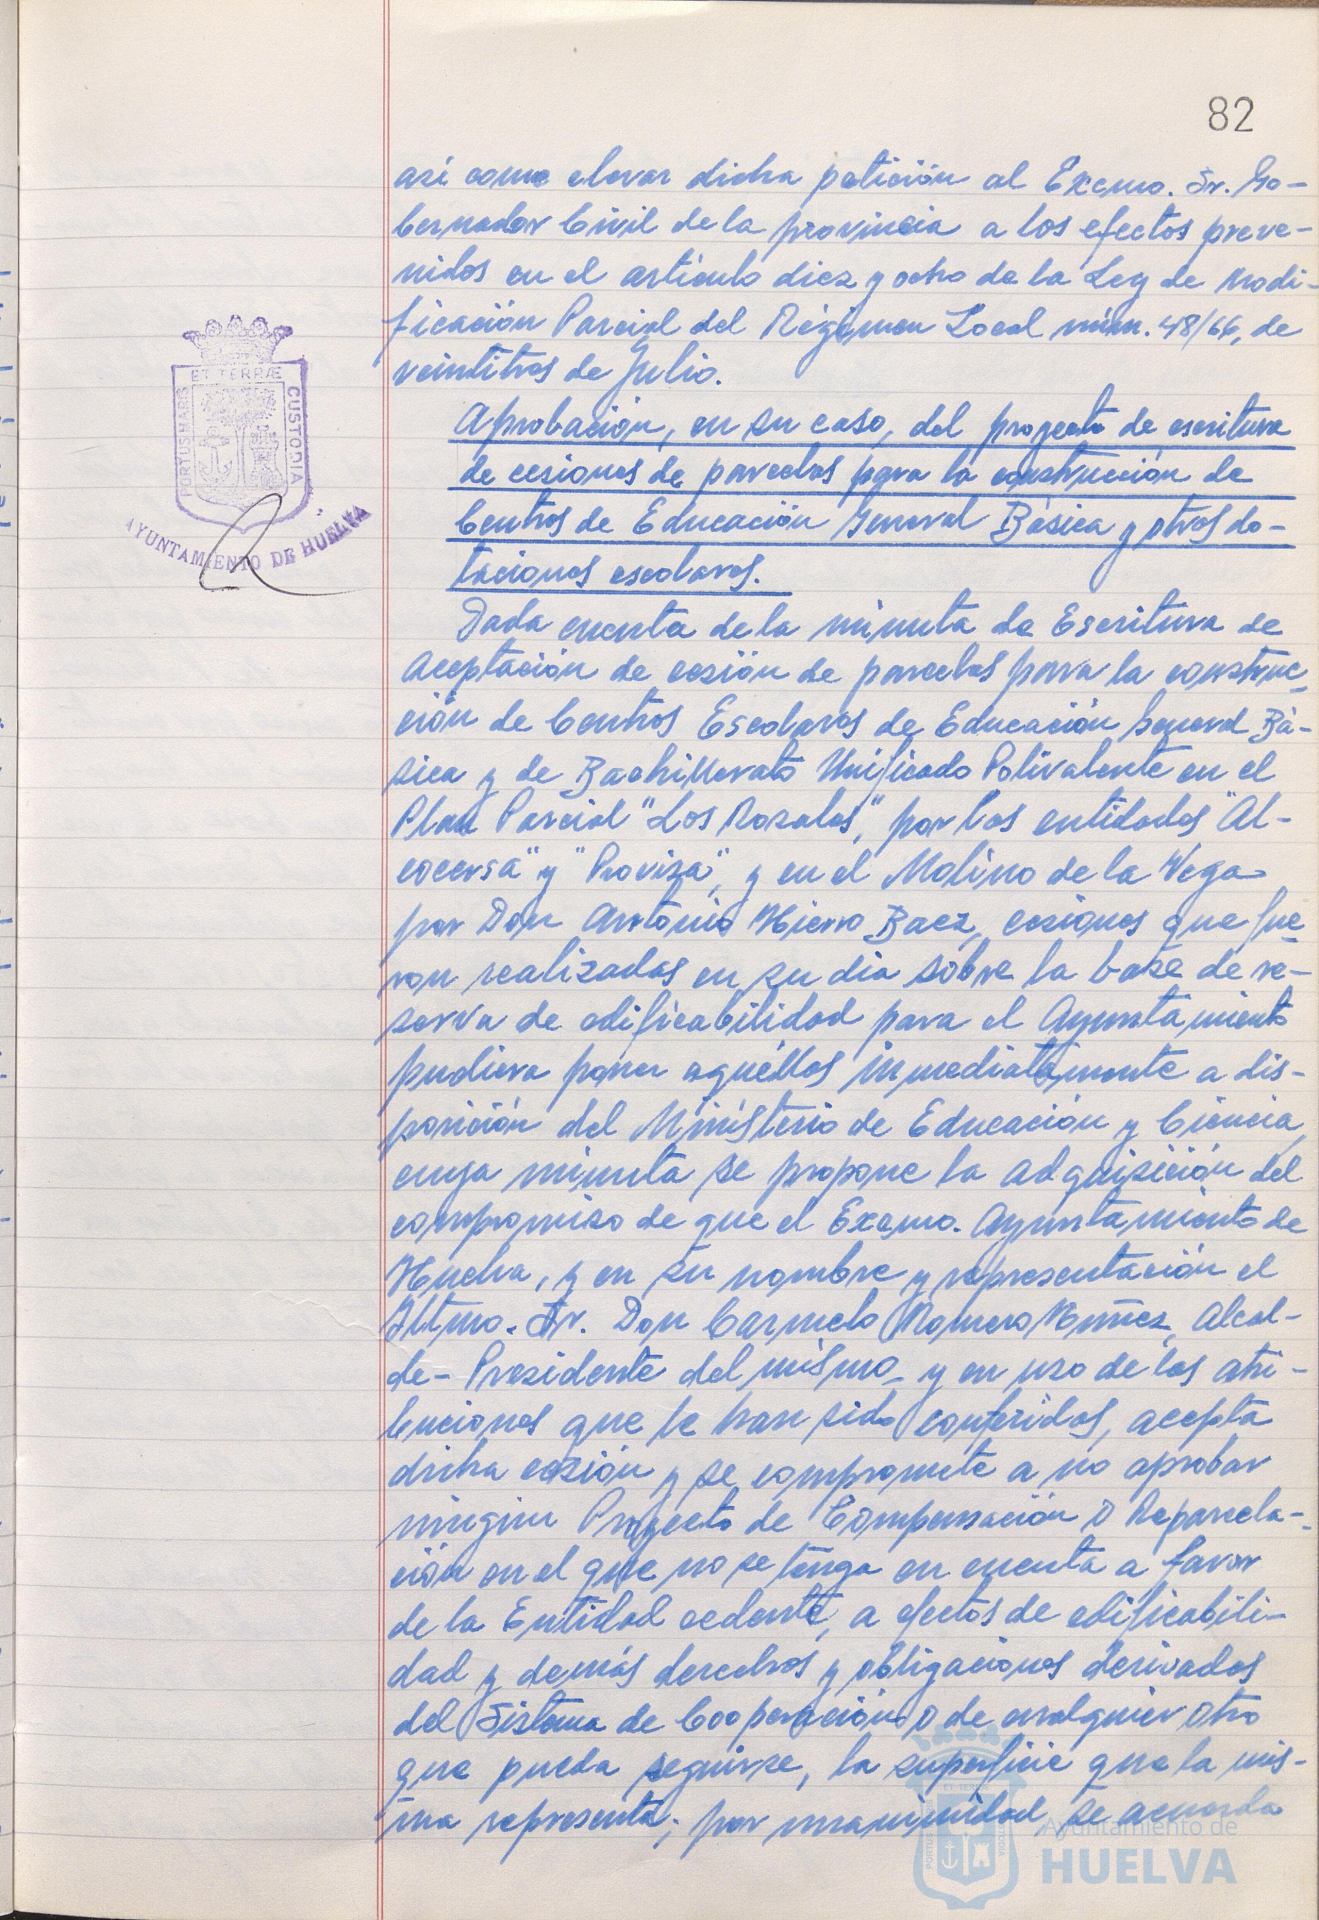 82
así como elevar dicha petición al Excmo. Sr. Go-
bernador Civil de la provincia a los efectos preve-
nidos en el artículo diez y ocho de la Ley de Modi-
ficación Parcial del Régimen Local núm. 48/66, de
veintitres de Julio.
Aprobación, en su caso, del proyecto de escritura
de cesiones de parcelas para la construcción de
Centros de Educación General Básica y otras do-
taciones escolares.
Dada cuenta de la minuta de Escritura de
Aceptación de cesión de parcelas para la construc-
ción de Centros Escolares de Educación General Bá-
sica y de Bachillerato Unificado Polivalente en el
Plan Parcial "Los Rosales", por las entidades "Al-
cocersa" y "Proviza", y en el Molino de la Vega
por Don Antonio Hierro Baez, cesiones que fue-
ron realizadas en su día sobre la base de re-
serva de edificabilidad para el Ayuntamiento
pudiera poner aquéllos inmediatamente a dis-
posición del Ministerio de Educación y Ciencia,
cuya minuta se propone la adquisición del
compromiso de que el Excmo. Ayuntamiento de
Huelva, y en su nombre y representación el
Iltmo. Sr. Don Carmelo Romero Núñez, Alcal-
de-Presidente del mismo, y en uso de las atri-
buciones que le han sido conferidas, acepta
dicha cesión y se compromete a no aprobar
ningún Proyecto de Compensación o Reparcela-
ción en el que no se tenga en cuenta a favor
de la Entidad cedente, a efectos de edificabili-
dad y demás derechos y obligaciones derivados
del Sistema de Cooperación o de cualquier otro
que pueda seguirse, la superficie que la mis-
ma representa; por unanimidad, se acuerda
PORTUS MARIS ET TERRÆ CUSTODIA
AYUNTAMIENTO DE HUELVA
Ayuntamiento de
HUELVA